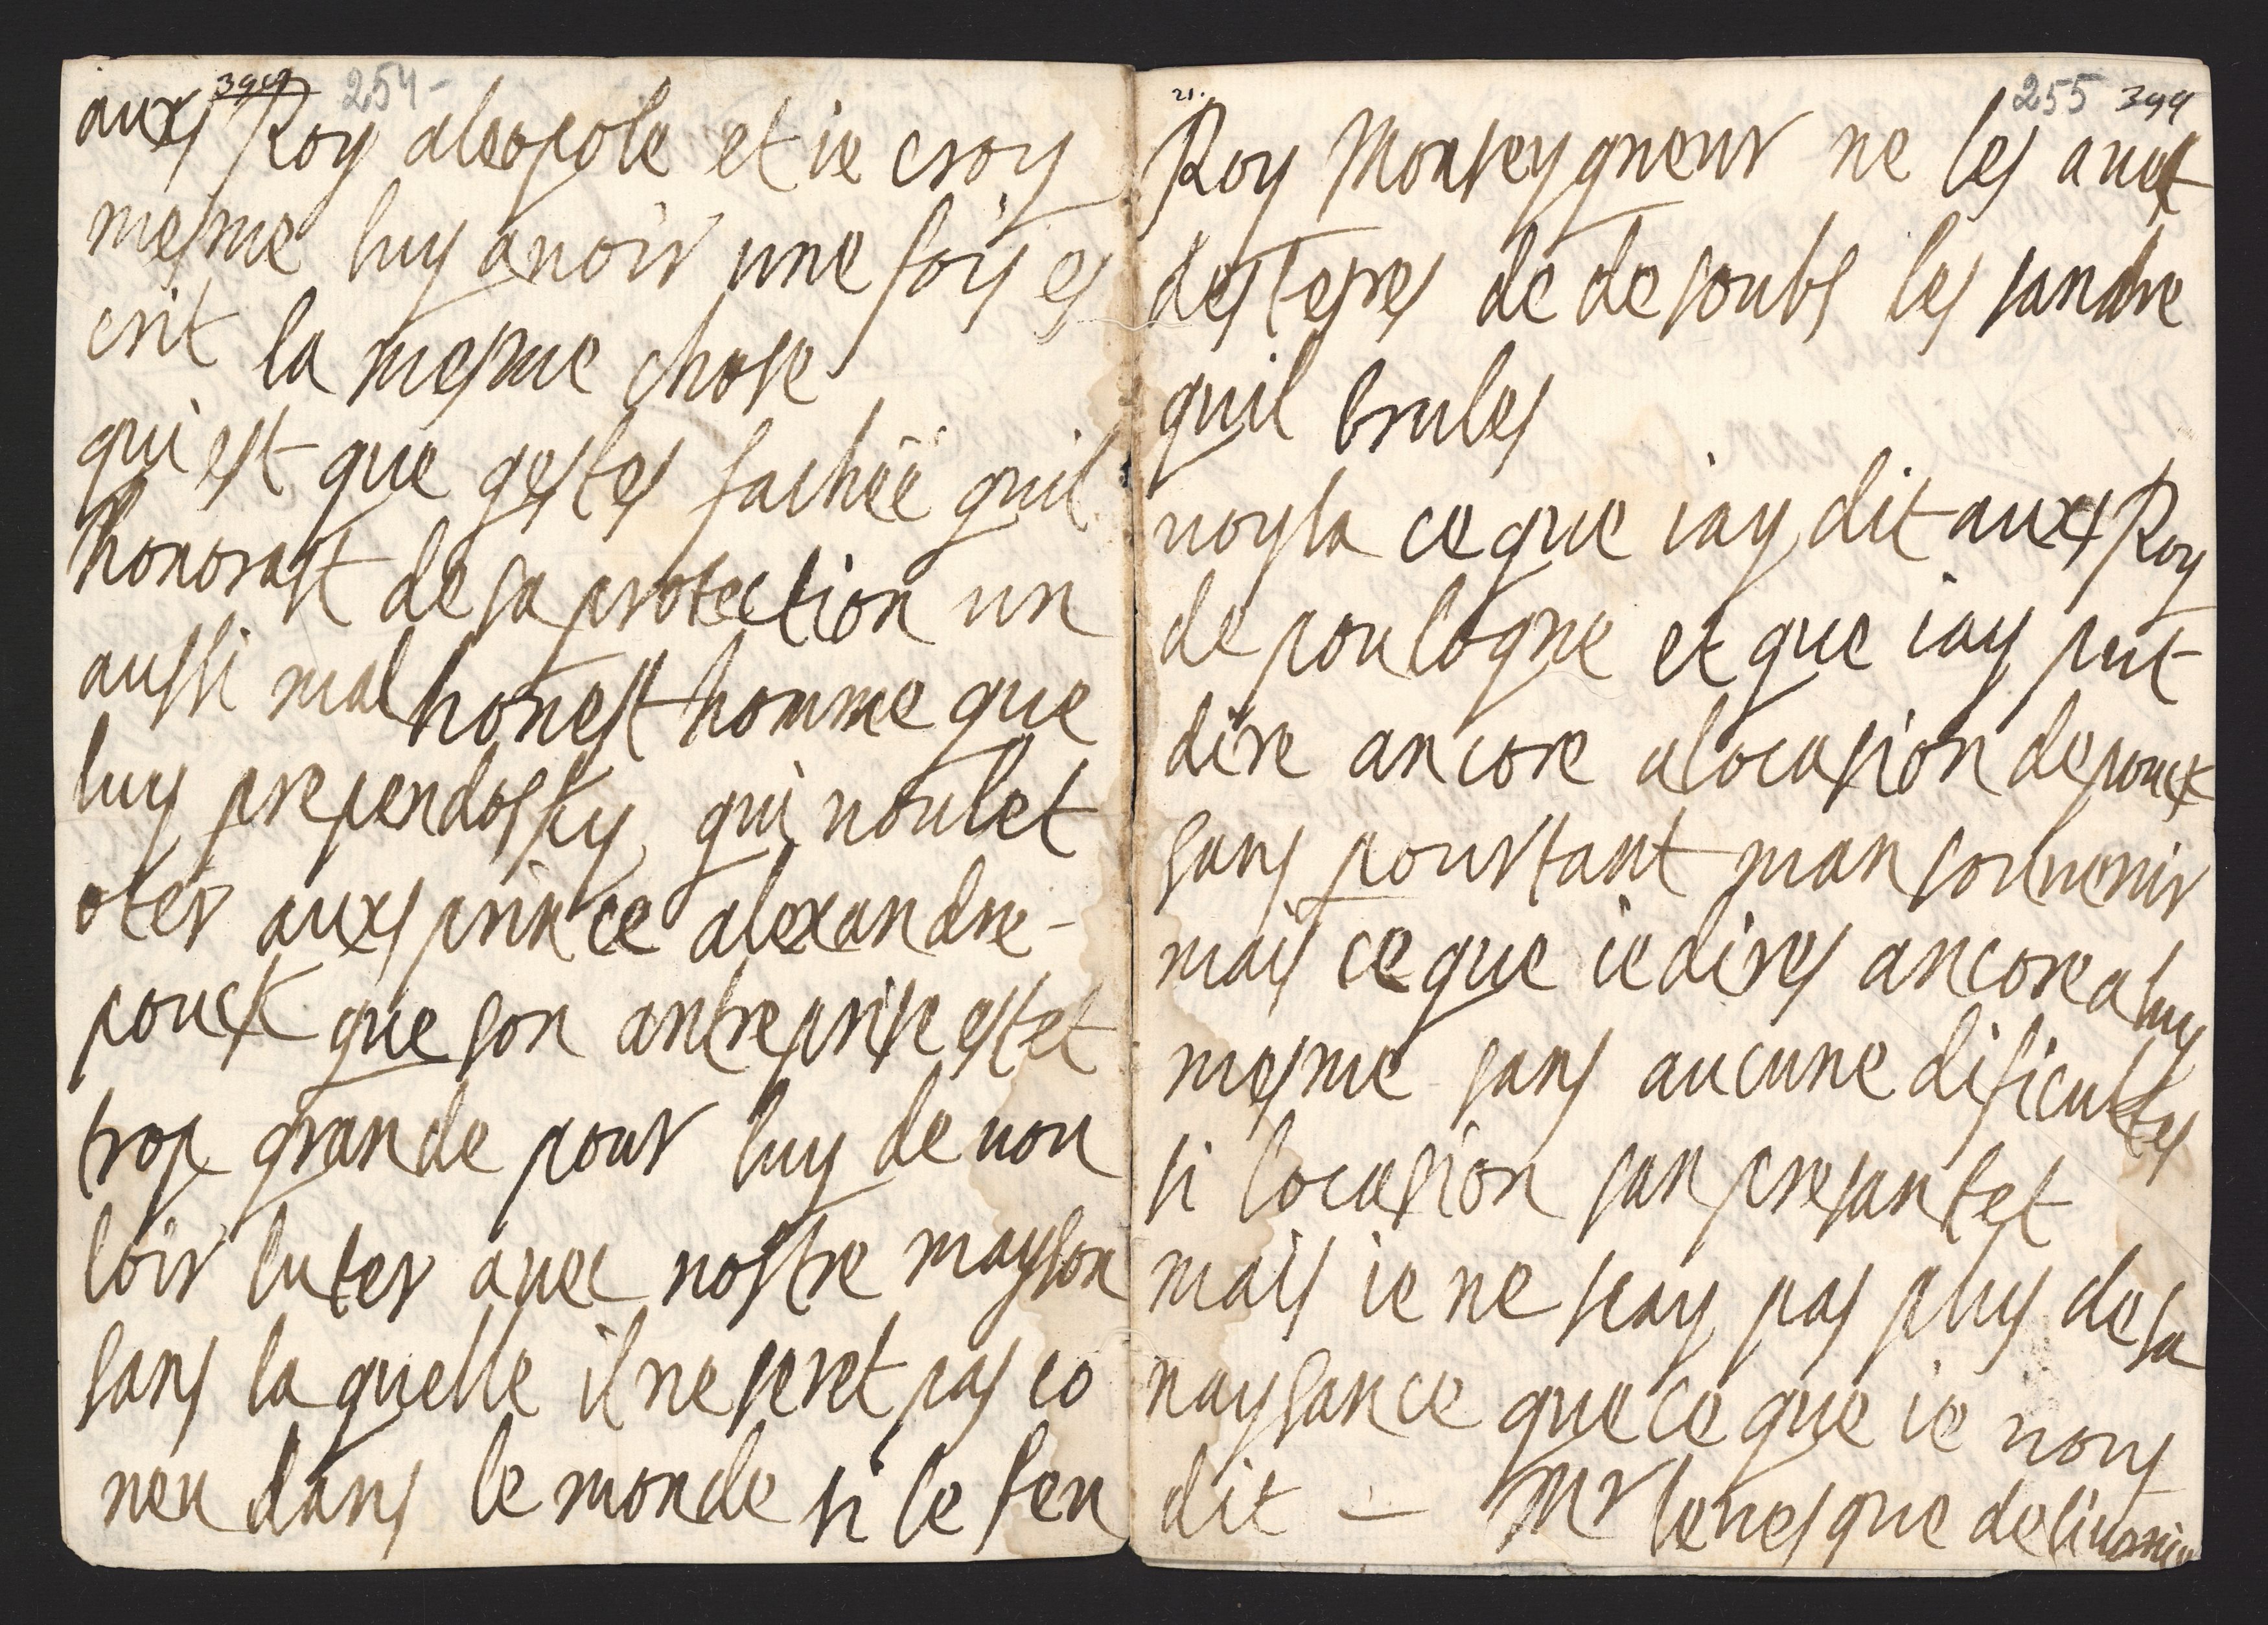 394 254-
auxs Roy aleopole et ie croy
mesme luy avoir une fois es
crit la mesme chose
qui est que gestes fachéé quil
honorast de sa protection un
aussi mal honest homme que
luy prependosky qui voulet
oter auxs prince alexandre-
pouck que son antreprise estet
trop grande pour luy de vou
loir luter avec nostre mayson
sans la quelle il ne seret pas co
neu dans le monde si le feu
21. 255 399
Roy Monseygneur ne les avet
desteres de desoubs les sandre
quil brules
voyla ce que iay dit auxs Roy
de poulogne et que iay put
dire ancore alocasion de pouck
sans pourtant man souvenir
mais ce que ie dires ancore a luy
mesme sans aucune dificultes
si locasion san presantet
mais ie ne scay pas plus de sa
naysance que ce que ie vous
dit – Mr levesque de livonie